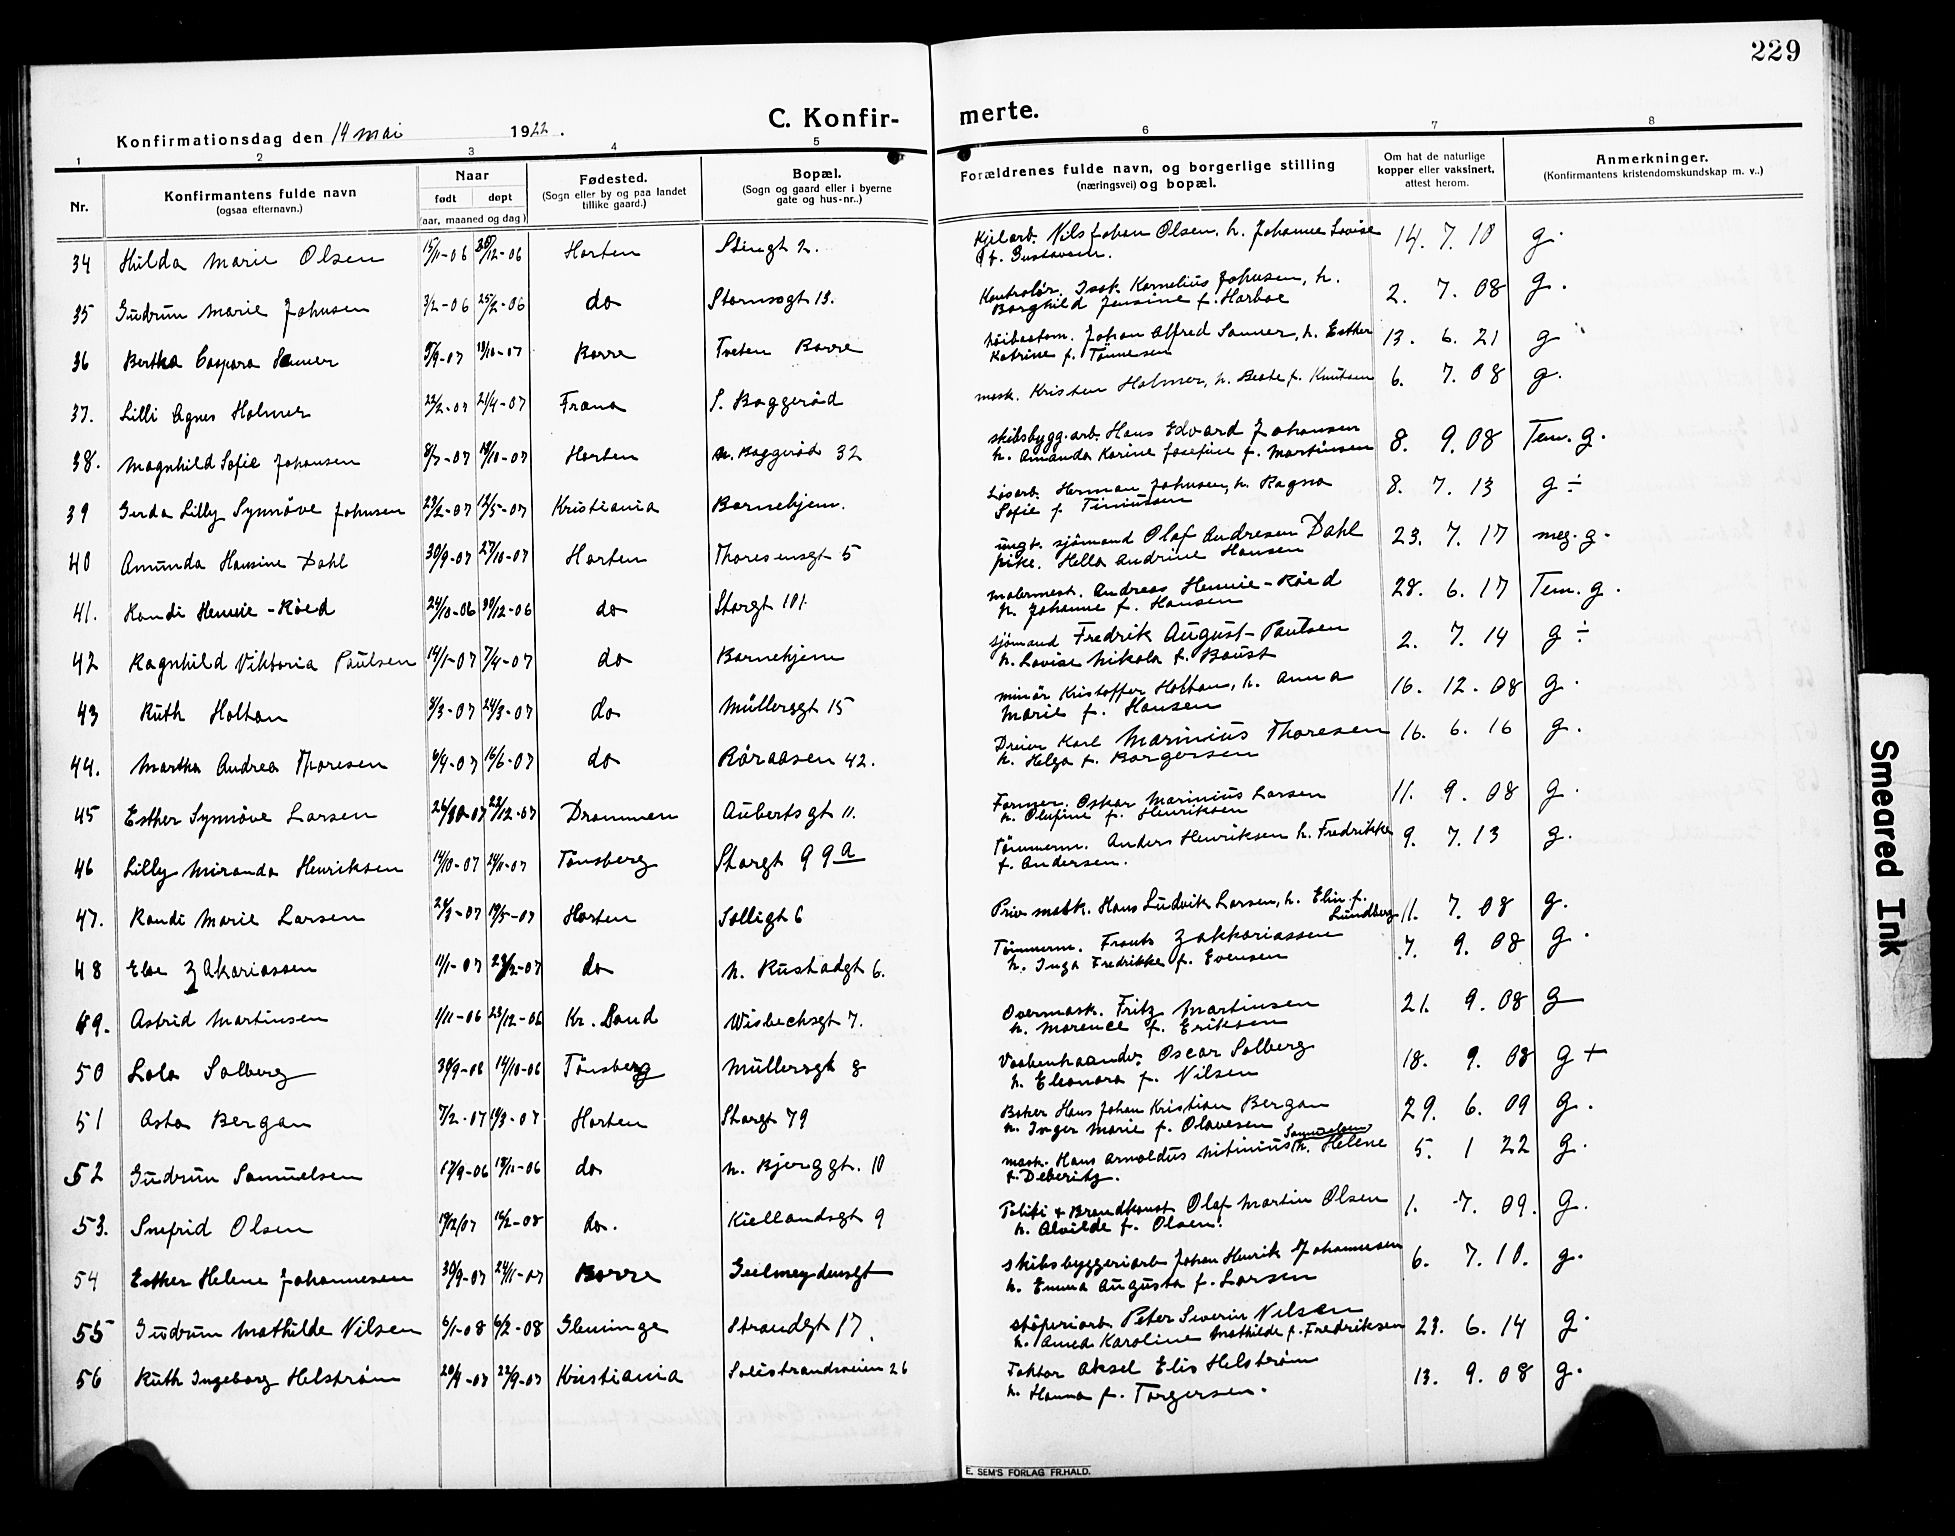 229
Konfirmationsdag den 14 mai 1922.
C. Konfir- merte.
1 2 3 4 5 6 7 8
Nr.
Konfirmantens fulde navn
(ogsaa efternavn.)
Naar
født døpt
(aar, maaned og dag)
Fødested.
(Sogn eller by og paa landet
tillike gaard.)
Bopæl.
(Sogn og gaard eller i byerne
gate og hus-nr..)
Forældrenes fulde navn, og borgerlige stilling
(næringsvei) og bopæl.
Om hat de naturlige
kopper eller vaksinert,
attest herom.
Anmerkninger.
(Konfirmantens kristendomskundskap m. v..)
34 Hilda Marie Olsen 15/11-06 30/12-06 Horten Stingt 2. Kjelarb. Nils Johan Olsen, h. Johanne Lovise 14. 7. 10 g.
f. Gustavsen.
35 Gudrun Marie Johnsen 3/2-06 25/2-06 do Stormsogt 13. Kontrolør. Isak Kornelius Johnsen, h. 2. 7. 08 g.
Borghild Jensine f. Harboe
36 Bertha Caspara Sanner 13/10-07 Borre Tveten Borre Johan Alfred Sanner, h. Esther 13. 6. 21 g
Katrine f. Tønnesen
37. Lilli Agnes Holmer 22/2-07 21/4-07 Fræna S. Baggerød mask. Kristen Holmer, h. Beate f. Knutsen 6. 7. 08 g.
38. Magnhild Sofie Johansen 8/7-07 Horten n. Baggerød 32 skibsbygg.arb. Hans Edvard Johansen 8. 9. 08 Tem. g.
h. Amanda Karine Josefine f. Martinsen
39 Gerda Lilly Synnøve Johnsen 23/2-07 12/5-07 Kristiania Barnehjem. Løsarb. Herman Johnsen, h. Ragna 8. 7. 13 g ÷
Sofie f.
40 Amunda Hansine Dahl 30/9-07 27/10-07 Horten Thoresensgt 5 ungk. sjømand Olaf Andresen Dahl 23. 7. 17 meg. g.
pike. Hella Andrine Hansen
41. Randi Hennie-Røed 24/10-06 30/12-06 do Storgt 101. malermest. Andreas Hennie-Røed 28. 6. 17 Tem. g.
h. Johanne f. Hansen
42 Ragnhild Viktoria Paulsen 14/1-07 7/4-07 do Barnehjem sjømand Fredrik August Paulsen 2. 7. 14 g ÷
h. Lovise Nikola f. Boust
43 Ruth Holtan 3/3-07 24/3-07 do Müllersgt 15 minør Kristoffer Holtan, h. Anna 16. 12. 08 g.
Marie f. Hansen
44. Martha Andrea Thoresen 9/4-07 16/6-07 do Røraasen 42. Dreier Karl Marinius Thoresen 16. 6. 16 g.
h. Helga f. Borgersen
45 Esther Synnøve Larsen 26/10-07 22/12-07 Drammen Aubertsgt 11. Former. Oskar Marinius Larsen 11. 9. 08 g.
h. Olufine f. Henriksen
46 Lilly Miranda Henriksen 14/10-07 24/11-07 Tønsberg Storgt 99a Tømmerm. Anders Henriksen h. Fredrikke 9. 7. 13 g.
f. Andersen.
47. Randi Marie Larsen 24/3-07 19/5-07 Horten Solligt 6 Priv mask. Hans Ludvik Larsen, h. Elin f. 11. 7. 08 g.
Lundberg
48 Else Zakariassen 11/1-07 do n. Rustadgt 6. Tømmerm. Frants Zakkariassen 7. 9. 08 g.
h. Inga Fredrikke f. Evensen
49. Astrid Martinsen 1/11-06 23/12-06 Kr. Sand Wisbechsgt 7. Overmask. Fritz Martinsen 21. 9. 08 g
h. Marence f. Eriksen
50 Lola Solberg 30/9-06 14/10-06 Tønsberg Müllersgt 8 Vaabenhaandv. Oscar Solberg 18. 9. 08 g +
h. Eleonora f. Nilsen
51 Asta Bergan 7/2-07 10/3-07 Horten Storgt 79 Baker Hans Johan Kristian Bergan 29. 6. 09 g.
h. Inger Marie f. Olavesen
52 Gudrun Samuelsen 17/9-06 19/11-06 do n. Bjerggt. 10 mask. Hans Arnoldus Nitinius Samuelsen h. Helene 5. 1 22 g.
f. Deberitz.
53. Snefrid Olsen 19/12/07 16/2-08 do. Kiellandsgt 9 Politi & Brandkonst. Olaf Martin Olsen 1. 7. 09. g.
h. Alvilde f. Olsen.
54 Esther Helene Johannesen 30/9-07 24/11-07 Borre Geelmeydensgt skibsbyggeriarb Johan Henrik Johannesen 6. 7. 10. g.
h. Emma Augusta f. Larsen
55 Gudrun Mathilde Nilsen 6/1-08 6/2-08 Glemminge Strandgt 17. støperiarb Peter Severin Nilsen 23. 6. 14 g.
h. Anna Karoline Mathilde f. Fredriksen
56 Ruth Ingeborg Helstrøm 20/4-07 22/9-07 Kristiania Solistrandsveien 26 Faktor Aksel Elis Helstrøm 13. 9. 08 g.
h. Hanna f. Torgersen.
E. SEM'S FORLAG FR.HALD.
Smeared Ink